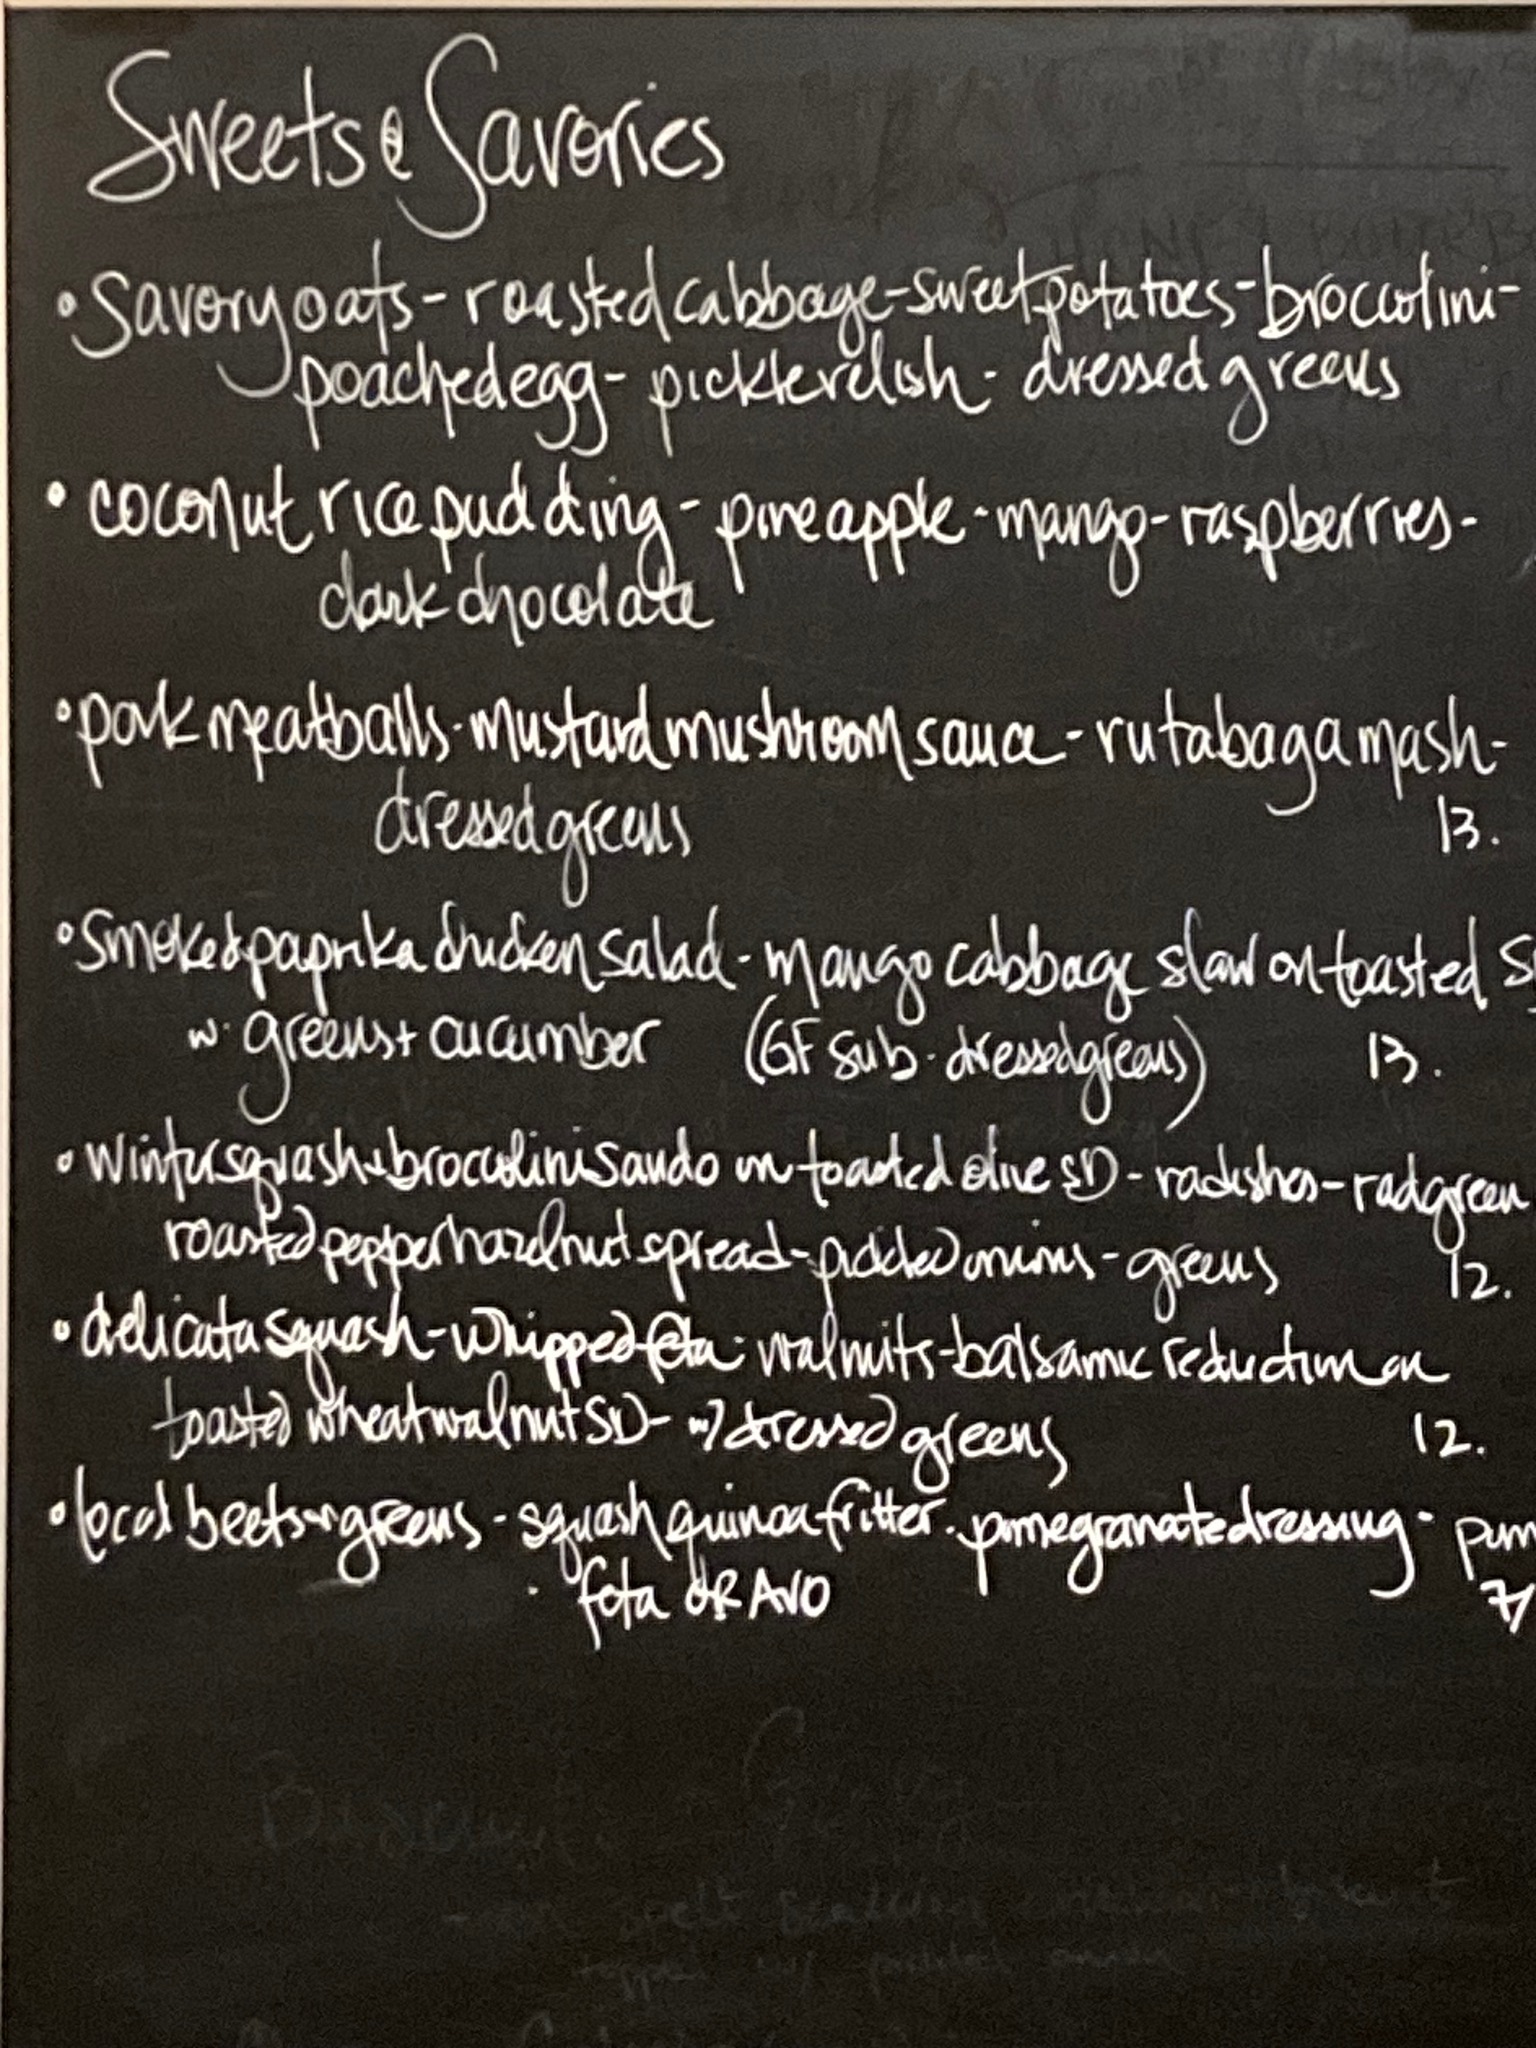 Sweets & Savories
• Savory oats - roasted cabbage - sweet potatoes - broccolini -
poached egg - pickle relish - dressed greens
• coconut rice pudding - pineapple - mango - raspberries -
dark chocolate
• pork meatballs - mustard mushroom sauce - rutabaga mash -
dressed greens 13.
• Smoked paprika chicken salad - mango cabbage slaw on toasted
w. greens + cucumber (GF sub. dressed greens) 13.
• winter squash + broccolini sando on toasted olive SD - radishes - rad green
roasted pepper hazelnut spread - pickled onions - greens 12.
• delicata squash - whipped feta - walnuts - balsamic reduction on
toasted wheat walnut SD - w/ dressed greens 12.
• local beets + greens - squash quinoa fritter - pomegranate dressing -
feta OR AVO